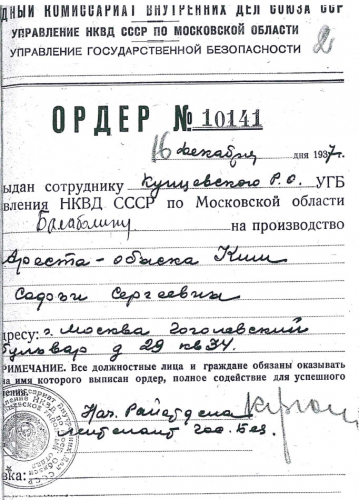 ДНЫЙ КОМИССАРИАТ ВНУТРЕННИХ ДЕЛ СОЮЗА ССР
УПРАВЛЕНИЕ НКВД СССР ПО МОСКОВСКОЙ ОБЛАСТИ
УПРАВЛЕНИЕ ГОСУДАРСТВЕННОЙ БЕЗОПАСНОСТИ
2
ОРДЕР № 10141
16 декабря дня 1937г.
ыдан сотруднику Кунцевского Р.О. УГБ
вления НКВД СССР по Московской области
на производство
Ареста-обыска Ким
Садочи Сергеевны
дресу: г. Москва Гоголевский
бульвар д 29 кв 34.
РИМЕЧАНИЕ. Все должностные лица и граждане обязаны оказывать
на имя которого выписан ордер, полное содействие для успешного
нения.
Нач. Райотдела
лейтенант гос. Без.
вка: